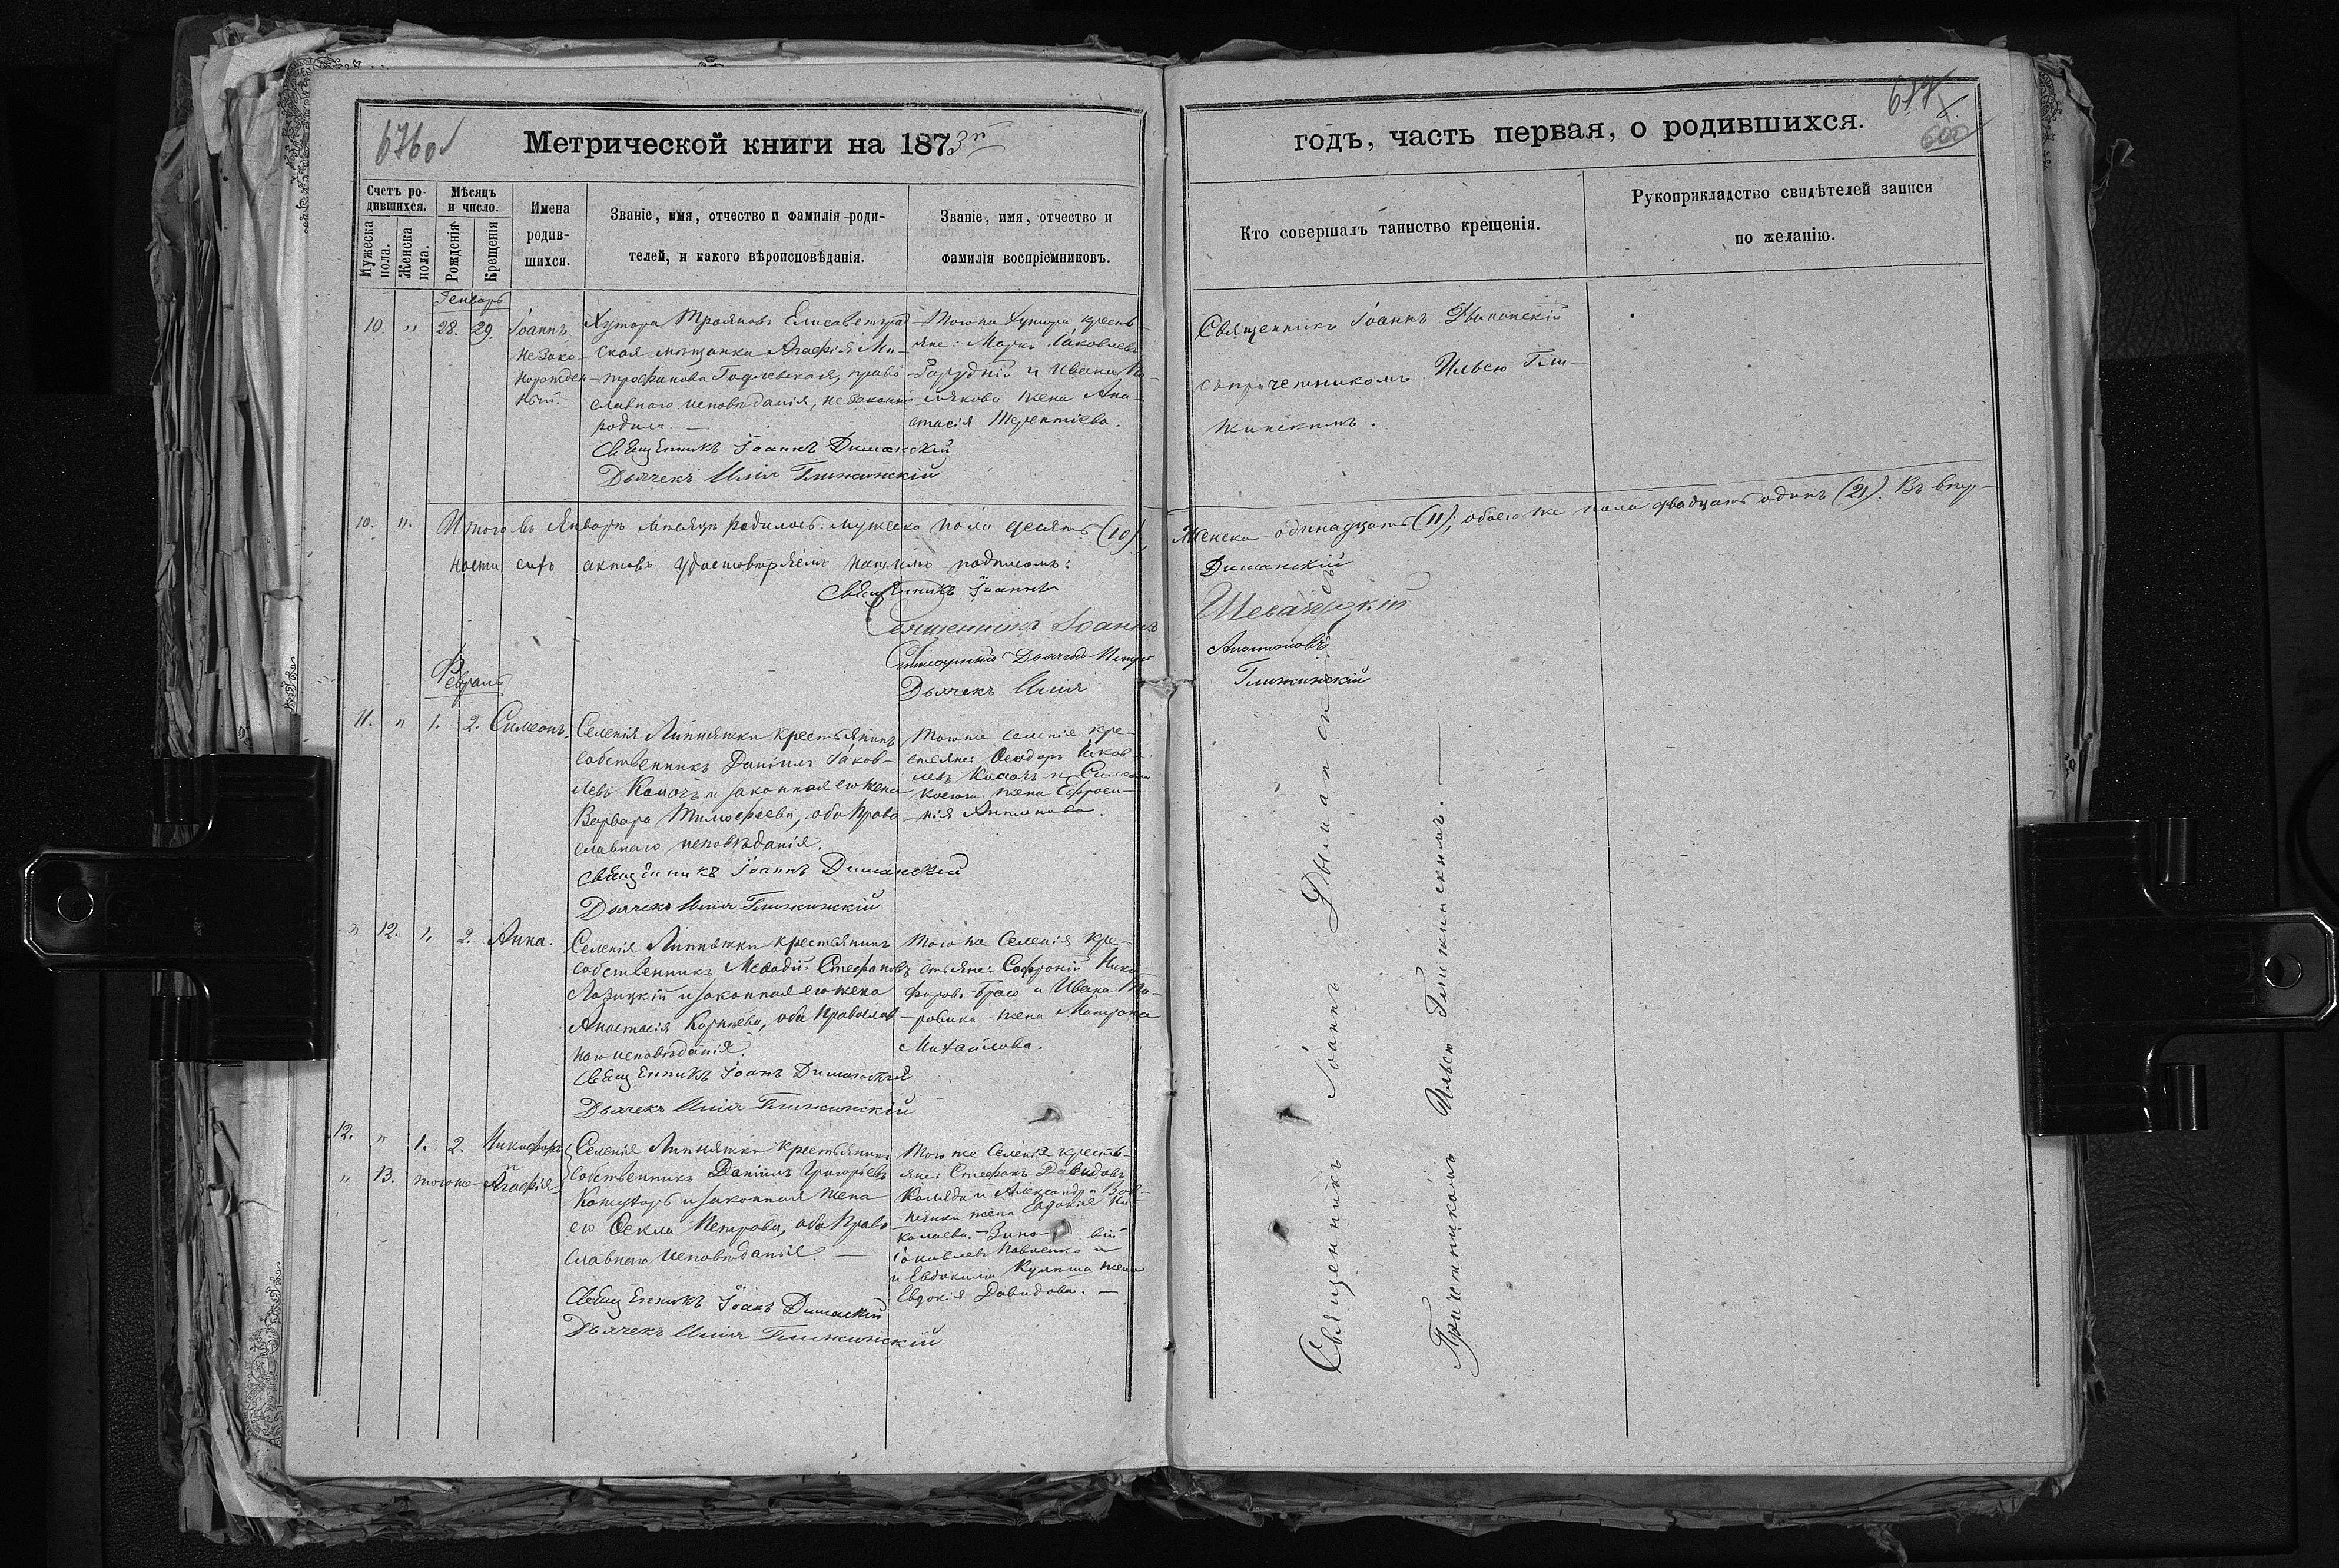 676об
Метрической книги на 1873й
Счетъ ро-
дившихся.
Мѣсяцъ
и число.
Имена
родив-
шихся.
Званіе, имя, отчество и фамилія роди-
телей, и какого вѣроисповѣданія.
Званіе, имя, отчество и
фамилія воспріемниковъ.
Мужеска
пола.
Женска
пола.
Рожденія
Крещенія
Генварь
10. " 28. 29. Іоаннъ
незако-
норожден-
ный.
Хутора Троянова Елисаветград-
ская мѣщанка Агафія Ми-
трофанова православнаго исповѣданія, незаконно
родила. —
Священникъ Іоаннъ Диманский
Дьячекъ Илія Глижинскій
Тогоже Хутора кресть-
яне: Марко Іаковлевъ
и Ивана
жена Ана-
стасія Терентіева.
10. 11. Итого въ Январѣ мѣсяцѣ родилось: мужеска пола десять (10),
ности сихъ актовъ удостовѣряемъ нашимъ подписомъ:
Священникъ Іоаннъ
Священникъ Іоаннъ
Дьячекъ Петръ
Дьячекъ Илія
Февраль
11. " 1. 2. Симеонъ.
Селенія Липняжки крестьянинъ
собственникъ Даніилъ Іаков-
левъ и законная его жена
Варвара Тимофеева, оба Право-
славнаго исповѣданія.
Священникъ Іоаннъ Диманский
Дьячекъ Илія Глижинскій
Тогоже селенія кре-
стьяне: Ѳеодоръ Іаков-
левъ и Симеона
жена Ефроси-
нія Антонова.
" 12. 1. 2. Анна.
Селенія Липняжки крестьянинъ
собственникъ Меѳодій Стефановъ
Лозицкій и законная его жена
Анастасія Корнѣева, оба Православ-
наго исповѣданія.
Священникъ Іоаннъ Диманский
Дьячекъ Илія Глижинскій
Того же Селенія кре-
стьяне: Софроній Ники-
форовъ и Ивана
жена Матрона
Михайлова.
12. " 1. 2. Никифоръ
" 13. тогоже Агафія
Селенія Липняжки крестьянинъ
собственникъ Даніилъ Григорьевъ
и законная жена
его Ѳекла Петрова, оба Право-
славнаго исповѣданія. —
Священникъ Іоаннъ Диманский
Дьячекъ Илія Глижинскій
Того же Селенія кресть-
яне: Стефанъ Давидовъ
Коляда и Александра
жена Евдокія Ни-
колаева. — Зино-вій
Іаковлевъ Павленко и
и Евдокима жена
Евдокія Давидова. —
годъ, часть первая, о родившихся.
677
600
Кто совершалъ таинство крещенія.
Рукоприкладство свидѣтелей записи
по желанію.
Священникъ Іоаннъ Дыманскій
съ причетникомъ Ильею Гли-
жинскимъ.
Женска одинадцать (11); обоего же пола двадцать одинъ (21). Въ вѣр-
Диманский
Шеваницкій
Антоновъ
Глижинскій
Священникъ Іоаннъ Дыманскій съ
Причетникомъ Ильею Глижинскимъ. —